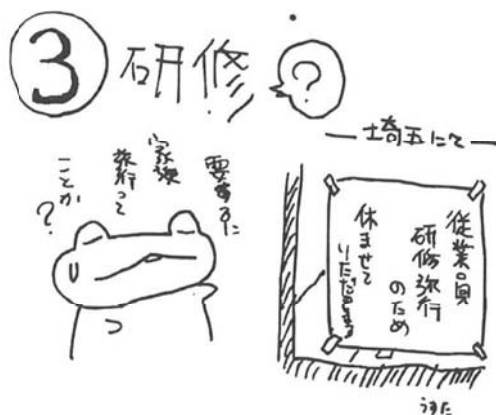 ③研修?
― 埼玉にて ―
要するに
家族
旅行って
ことか
?
従業員
研修旅行
のため
休ませて
いただきます
うまた